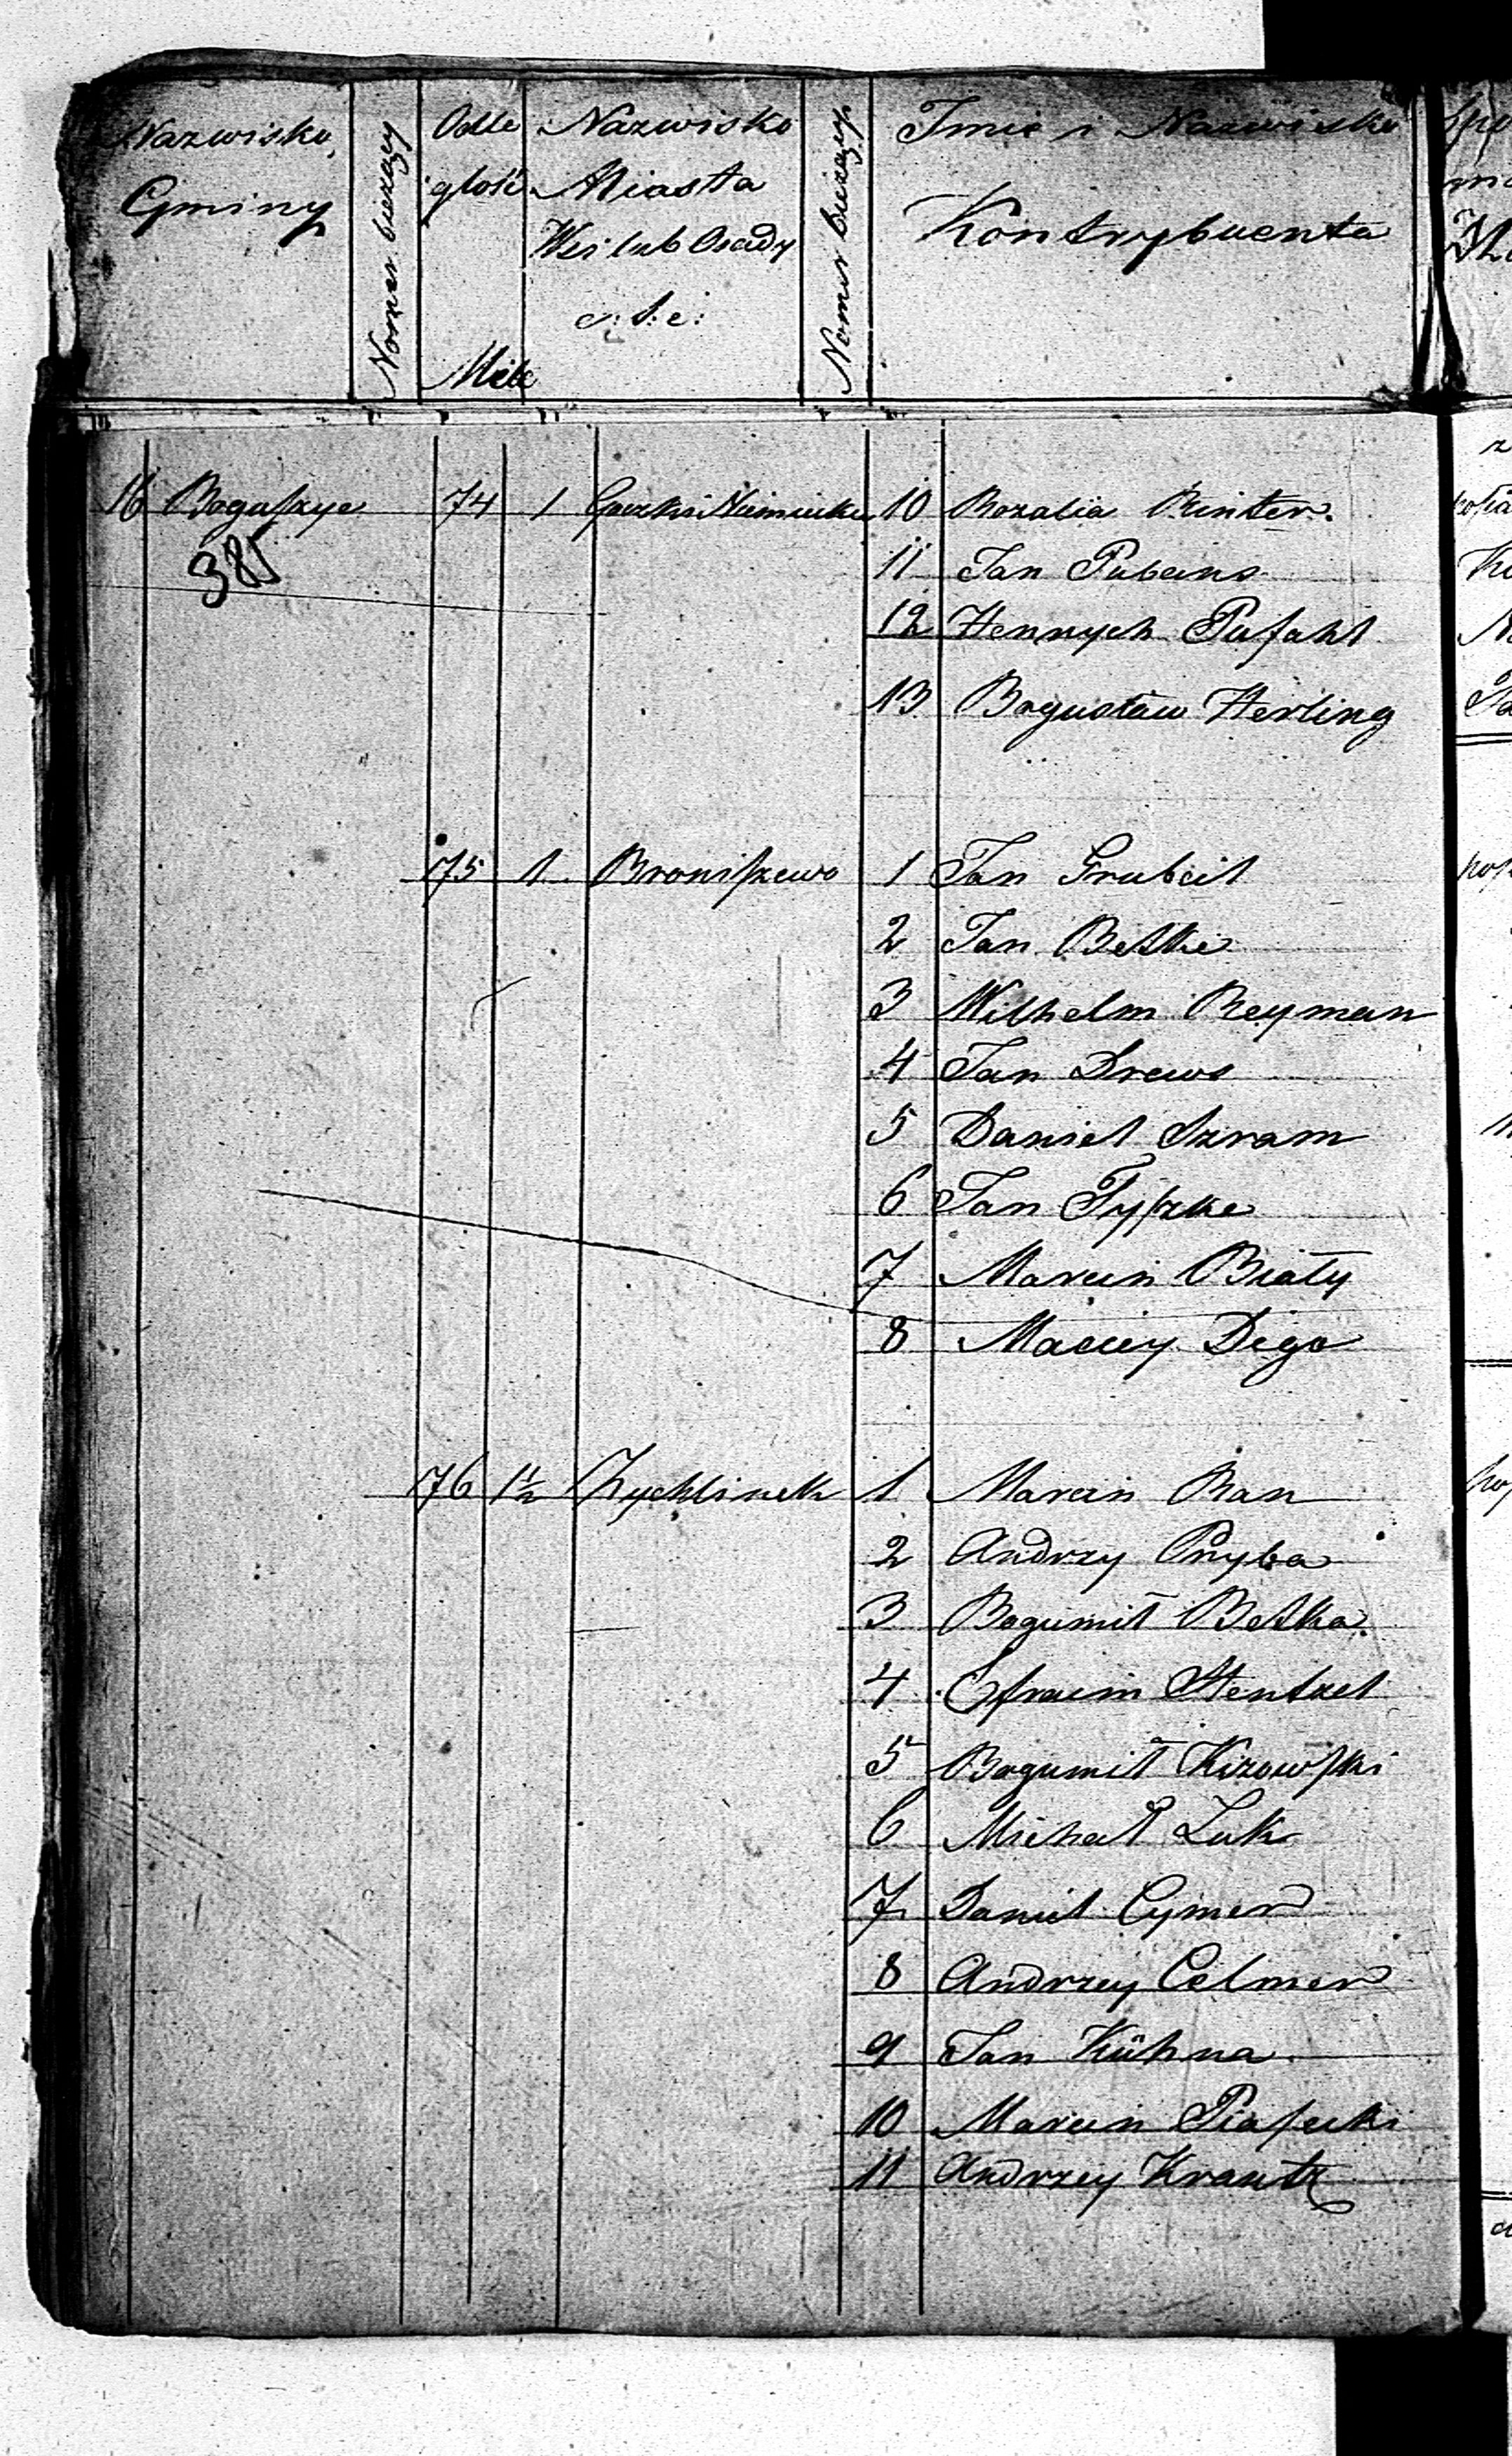 Nazwisko Gminy | Nomer bieżący | Odległość Mile | Nazwisko Miasta Wsi lub Osady e: t: c: | Nomer bieżący | Imie i Nazwisko Kontrybuenta
16 Boguszyce 74 1 Niemiecki 10 Rozalia Rinter.
381 11 Jan
12 Henrych Pufahl
13 Bogusław Herling
75 1 Broniszewo 1 Jan Grubeit
2 Jan Betke
3 Wilhelm Reyman
4 Jan Drews
5 Daniel Szram
6 Jan Tyszke
7 Marcin Biały
8 Maciey Diga
76 1½ Zychlinek 1 Marcin Ran
2 Andrzy Pryba
3 Bogumił Betka.
4 Efraim Hentzel
5 Bogumił Kizowski
6 Michał Luk
7 Daniel Cymer
8 Andrzey Celmer
9 Jan Kühna
10 Marcin Piasecki
11 Andrzey Krantz